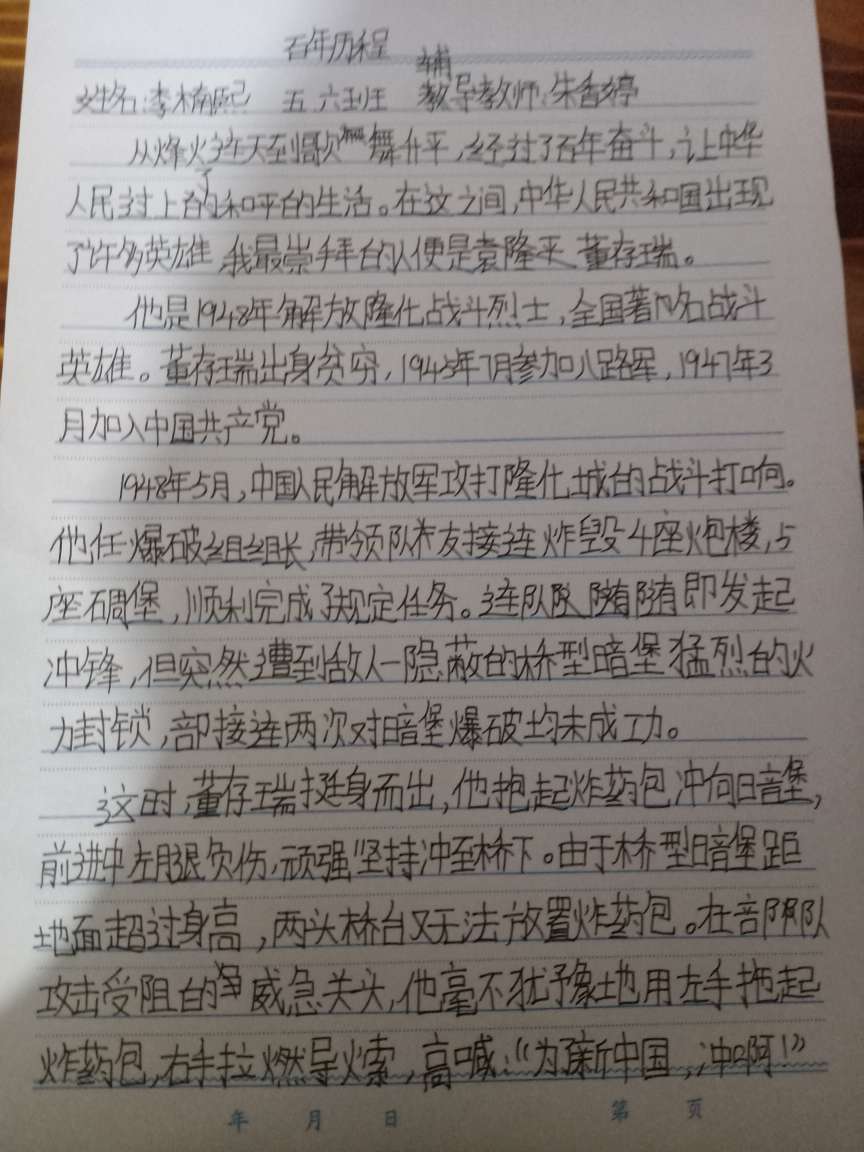 百年历程
姓名:李楠熙 五.六班 辅教导教师:朱香婷
从烽火连天到歌舞升平,经过了百年奋斗,让中华
人民过上了的和平的生活。在这之间,中华人民共和国出现
了许多英雄,我最崇拜的人便是袁隆平、董存瑞。
他是1948年解放隆化战斗烈士,全国著名战斗
英雄。董存瑞出身贫穷,1945年7月参加八路军,1947年3
月加入中国共产党。
1948年5月,中国人民解放军攻打隆化城的战斗打响。
他任爆破组组长,带领队友接连炸毁4座炮楼,5
座碉堡,顺利完成了规定任务。连队随即发起
冲锋,但突然遭到敌人一隐蔽的桥型暗堡猛烈的火
力封锁,部接连两次对暗堡爆破均未成功。
这时,董存瑞挺身而出,他抱起炸药包冲向暗堡,
前进中左腿负伤,顽强坚持冲至桥下。由于桥型暗堡距
地面超过身高,两头桥台又无法放置炸药包。在部队
攻击受阻的危急关头,他毫不犹豫地用左手拖起
炸药包,右手拉燃导火索,高喊:“为了新中国,冲啊!”
年 月 日 第 页